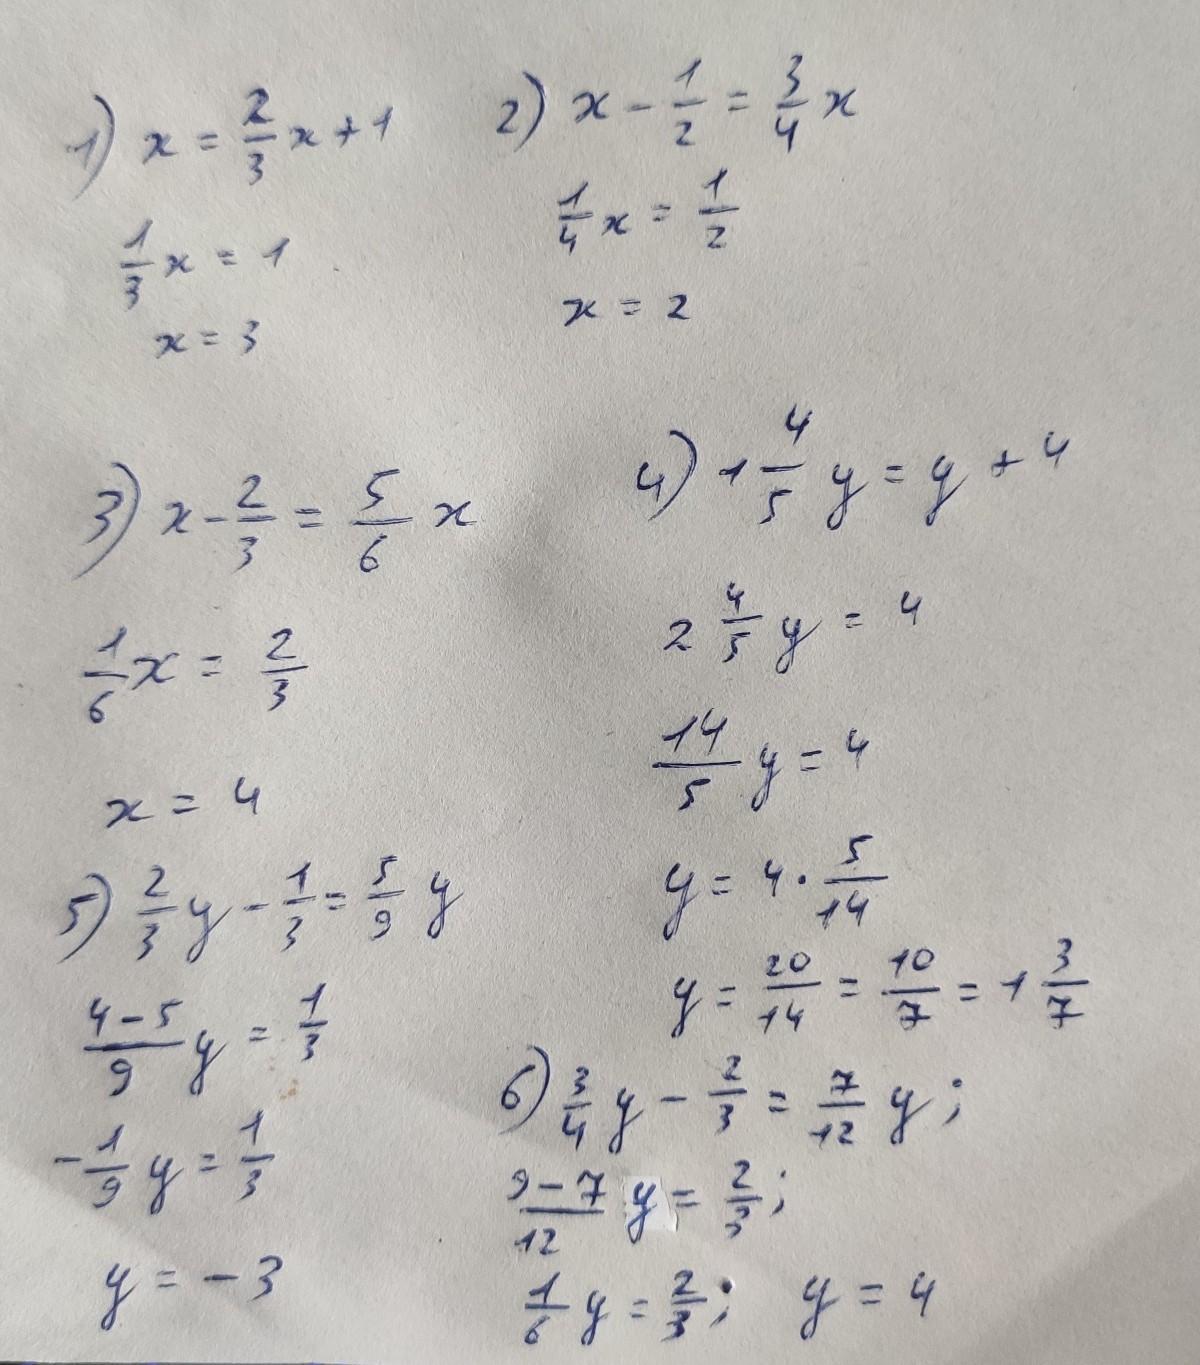 1) x = 2/3 x + 1
1/3 x = 1
x = 3
2) x - 1/2 = 3/4 x
1/4 x = 1/2
x = 2
3) x - 2/3 = 5/6 x
1/6 x = 2/3
x = 4
4) 1 4/5 y = y + 4
2 4/5 y = 4
14/5 y = 4
y = 4 · 5/14
y = 20/14 = 10/7 = 1 3/7
5) 2/3 y - 1/3 = 5/9 y
(4-5)/9 y = 1/3
-1/9 y = 1/3
y = -3
6) 3/4 y - 2/3 = 7/12 y;
(9-7)/12 y = 2/3;
1/6 y = 2/3; y = 4